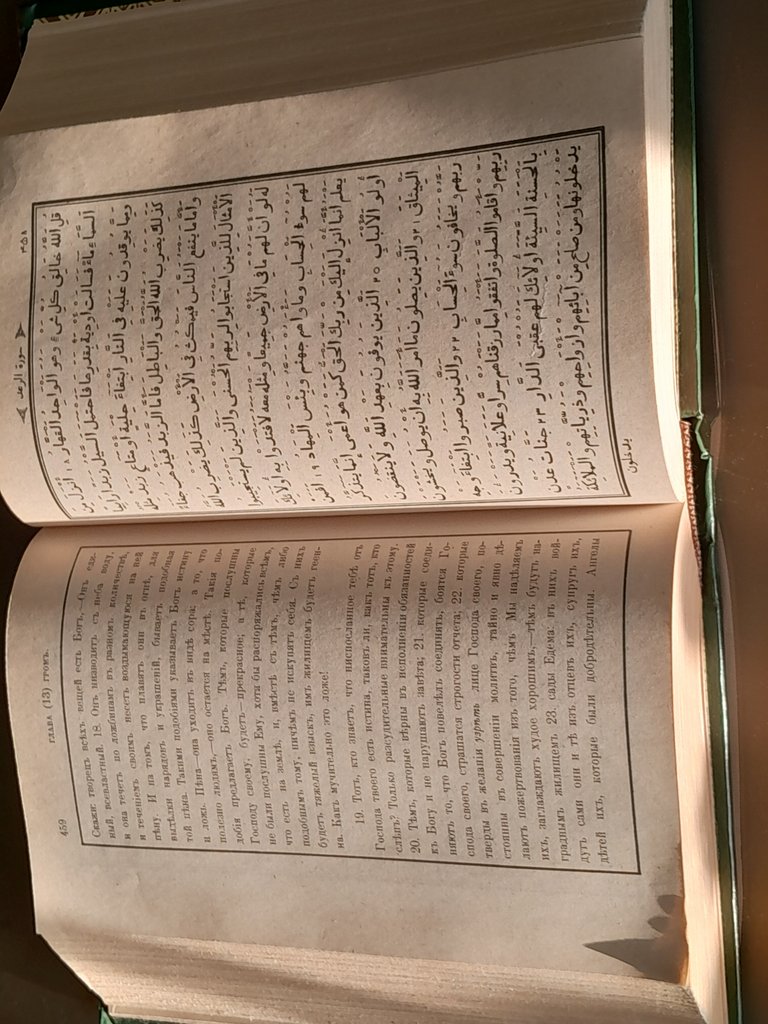 ٤٥٨
سورة الرعد
قل الله خالق كل شىء وهو الواحد القهار ١٨ انزل من
السماء ماء فسالت اودية بقدرها فاحتمل السيل زبدا رابيا
ومما يوقدون عليه فى النار ابتغاء حلية او متاع زبد مثله
كذلك يضرب الله الحق والباطل فاما الزبد فيذهب جفاء
واما ما ينفع الناس فيمكث فى الارض كذلك يضرب الله
الامثال للذين استجابوا لربهم الحسنى والذين لم يستجيبوا
له لو ان لهم ما فى الارض جميعا ومثله معه لافتدوا به اولائك
لهم سوء الحساب وماواهم جهنم وبئس المهاد ١٩ افمن
يعلم انما انزل اليك من ربك الحق كمن هو اعمى انما يتذكر
اولو الالباب ٢٠ الذين يوفون بعهد الله ولا ينقضون
الميثاق ٢١ والذين يصلون ما امر الله به ان يوصل ويخشون
ربهم ويخافون سوء الحساب ٢٢ والذين صبروا ابتغاء وجه
ربهم واقاموا الصلوة وانفقوا مما رزقناهم سرا وعلانية ويدرؤن
بالحسنة السيئة اولائك لهم عقبى الدار ٢٣ جنات عدن
يدخلونها ومن صلح من آبائهم وازواجهم وذرياتهم والملائكة
يدخلون
459
ГЛАВА (13) ГРОМЪ.
Скажи: творецъ всѣхъ вещей есть Богъ,—Онъ еди-
ный, всевластный. 18. Онъ низводитъ съ неба воду,
и она течетъ по ложбинамъ въ разномъ количествѣ,
и теченіемъ своимъ несетъ воздымающуюся на ней
пѣну. И на томъ, что плавятъ они въ огнѣ, для
выдѣлки нарядовъ и украшеній, бываетъ подобная
той пѣна. Такими подобіями указываетъ Богъ истину
и ложь. Пѣна—она уходитъ въ видѣ сора; а то, что
полезно людямъ,—оно остается на мѣстѣ. Такія по-
добія предлагаетъ Богъ. Тѣмъ, которые послушны
Господу своему, будетъ—прекрасное; а тѣ, которые
не были послушны Ему, хотя бы распоряжались всѣмъ,
что есть на землѣ, и, вмѣстѣ съ тѣмъ, чѣмъ либо
подобнымъ тому, ничѣмъ не искупятъ себя. Съ нихъ
будетъ тяжелый взыскъ, имъ жилищемъ будетъ геен-
на. Какъ мучительно это ложе!
19. Тотъ, кто знаетъ, что ниспосланное тебѣ отъ
Господа твоего есть истина, таковъ ли, какъ тотъ, кто
слѣпъ? Только разсудительные внимательны къ этому.
20. Тѣмъ, которые вѣрны въ исполненіи обязанностей
къ Богу и не нарушаютъ завѣта; 21. которые соеди-
няютъ то, что Богъ повелѣлъ соединять, боятся Го-
спода своего, страшатся строгости отчета; 22. которые
тверды въ желаніи узрѣть лице Господа своего, по-
стоянны въ совершеніи молитвъ, тайно и явно дѣ-
лаютъ пожертвованія изъ того, чѣмъ Мы надѣляемъ
ихъ, заглаждаютъ худое хорошимъ,—тѣмъ будутъ на-
граднымъ жилищемъ 23. сады Едема: въ нихъ вой-
дутъ сами они и тѣ изъ отцевъ ихъ, супругъ ихъ,
дѣтей ихъ, которые были добродѣтельны. Ангелы